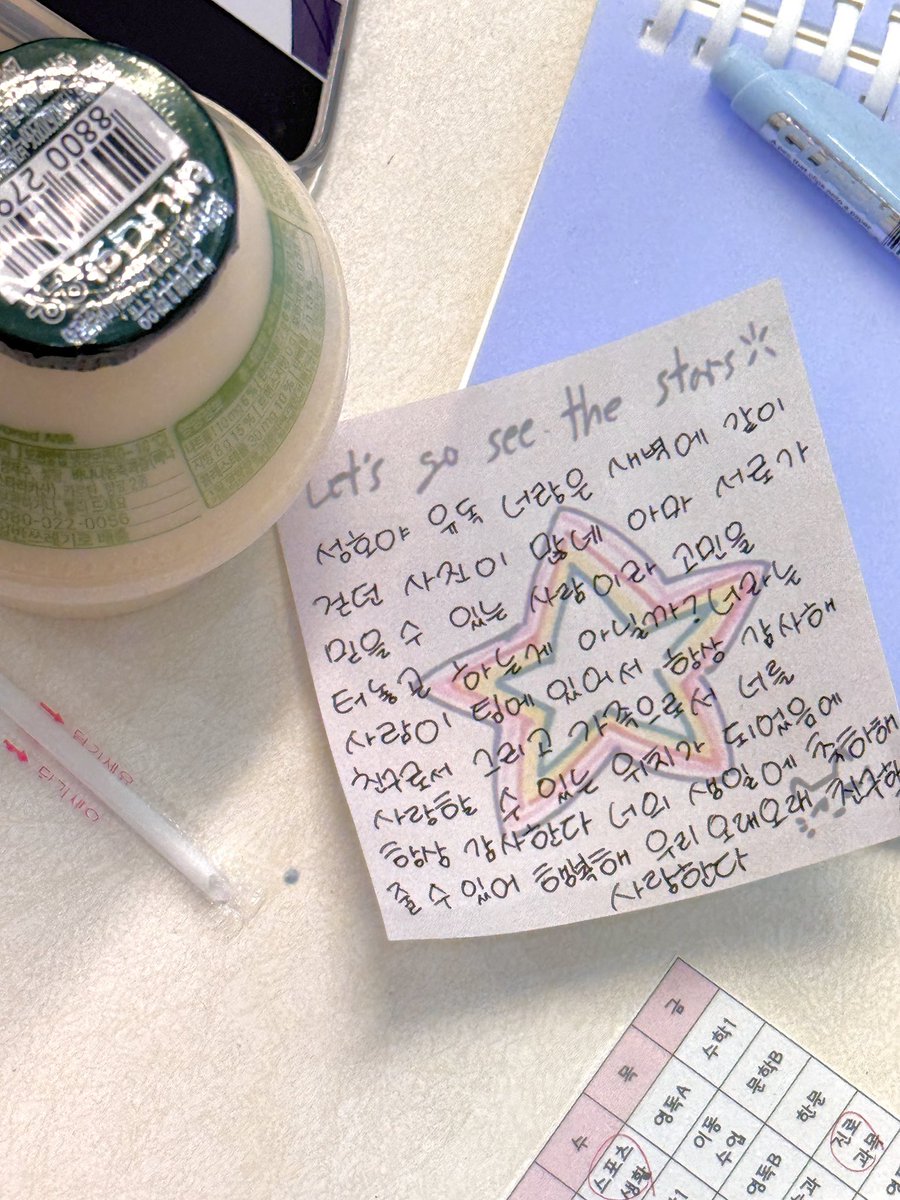 8800 279
080-022-0056
Let's go see the stars
성호야 유독 너랑은 새벽에 같이
걷던 사진이 많네 아마 서로가
믿을 수 있는 사람이라 고민을
터놓고 하는게 아닐까? 너라는
사람이 팀에 있어서 항상 감사해
친구로서 그리고 가족으로서 너를
사랑할 수 있는 위치가 되었음에
항상 감사한다 너의 생일에 축하해
줄 수 있어 행복해 우리 오래오래 친구하
사랑한다
금
수학1
문학B
한문
진로
과목
목
영독A
이동
수업
영독B
수
스포츠
생활